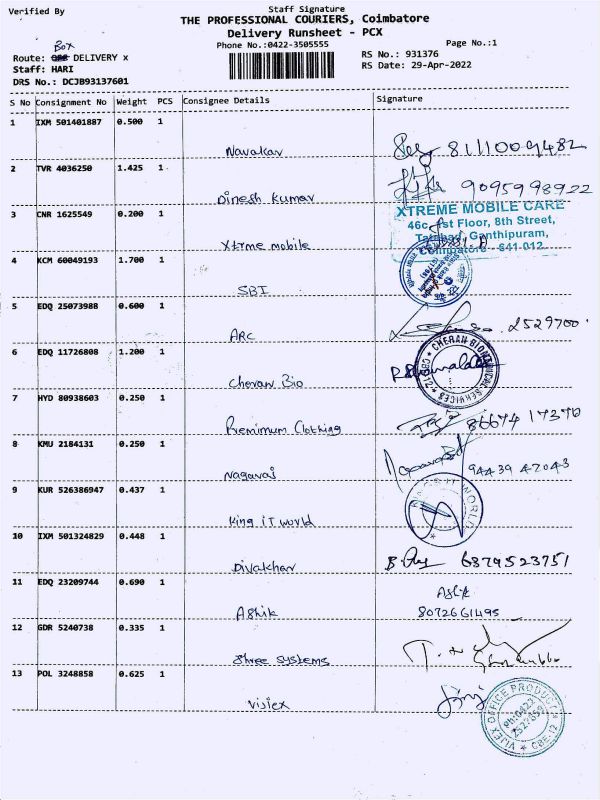 Verified By
Staff Signature
THE PROFESSIONAL COURIERS, Coimbatore
Delivery Runsheet - PCX
Phone No.:0422-3505555
Page No.:1
Box
Route: DELIVERY x
RS No.: 931376
Staff: HARI
RS Date: 29-Apr-2022
DRS No.: DCJB93137601
S No Consignment No Weight PCS Consignee Details Signature
1 IXM 501401887 0.500 1
Navakar 8111009482
2 TVR 4036250 1.425 1
Dinesh kumar 9095998922
3 CNR 1625549 0.200 1
XTREME MOBILE CARE
46c, 1st Floor, 8th Street,
Tatabad, Ganthipuram,
Xtrme mobile
Coimbatore - 641 012
4 KCM 60049193 1.700 1
SBI
5 EDQ 25073988 0.600 1
ARC 2529700
6 EDQ 11726808 1.200 1
CHERAN BIOMEDICAL SERVICES CBE-12
Cheran Bio
7 HYD 80938603 0.250 1
Premimum Clothing 86674 17370
8 KMU 2184131 0.250 1
Nagaraj 94439 47043
9 KUR 526386947 0.437 1
King iT world
IT WORLD
10 IXM 501324829 0.448 1
Divakhar 6379523751
11 EDQ 23209744 0.690 1
Ashik
Ashik 8072661495
12 GDR 5240738 0.335 1
Shree systems
13 POL 3248858 0.625 1
Vijiex
VIJEX OFFICE PRODUCTS CBE-12
Ph:0422
2527659